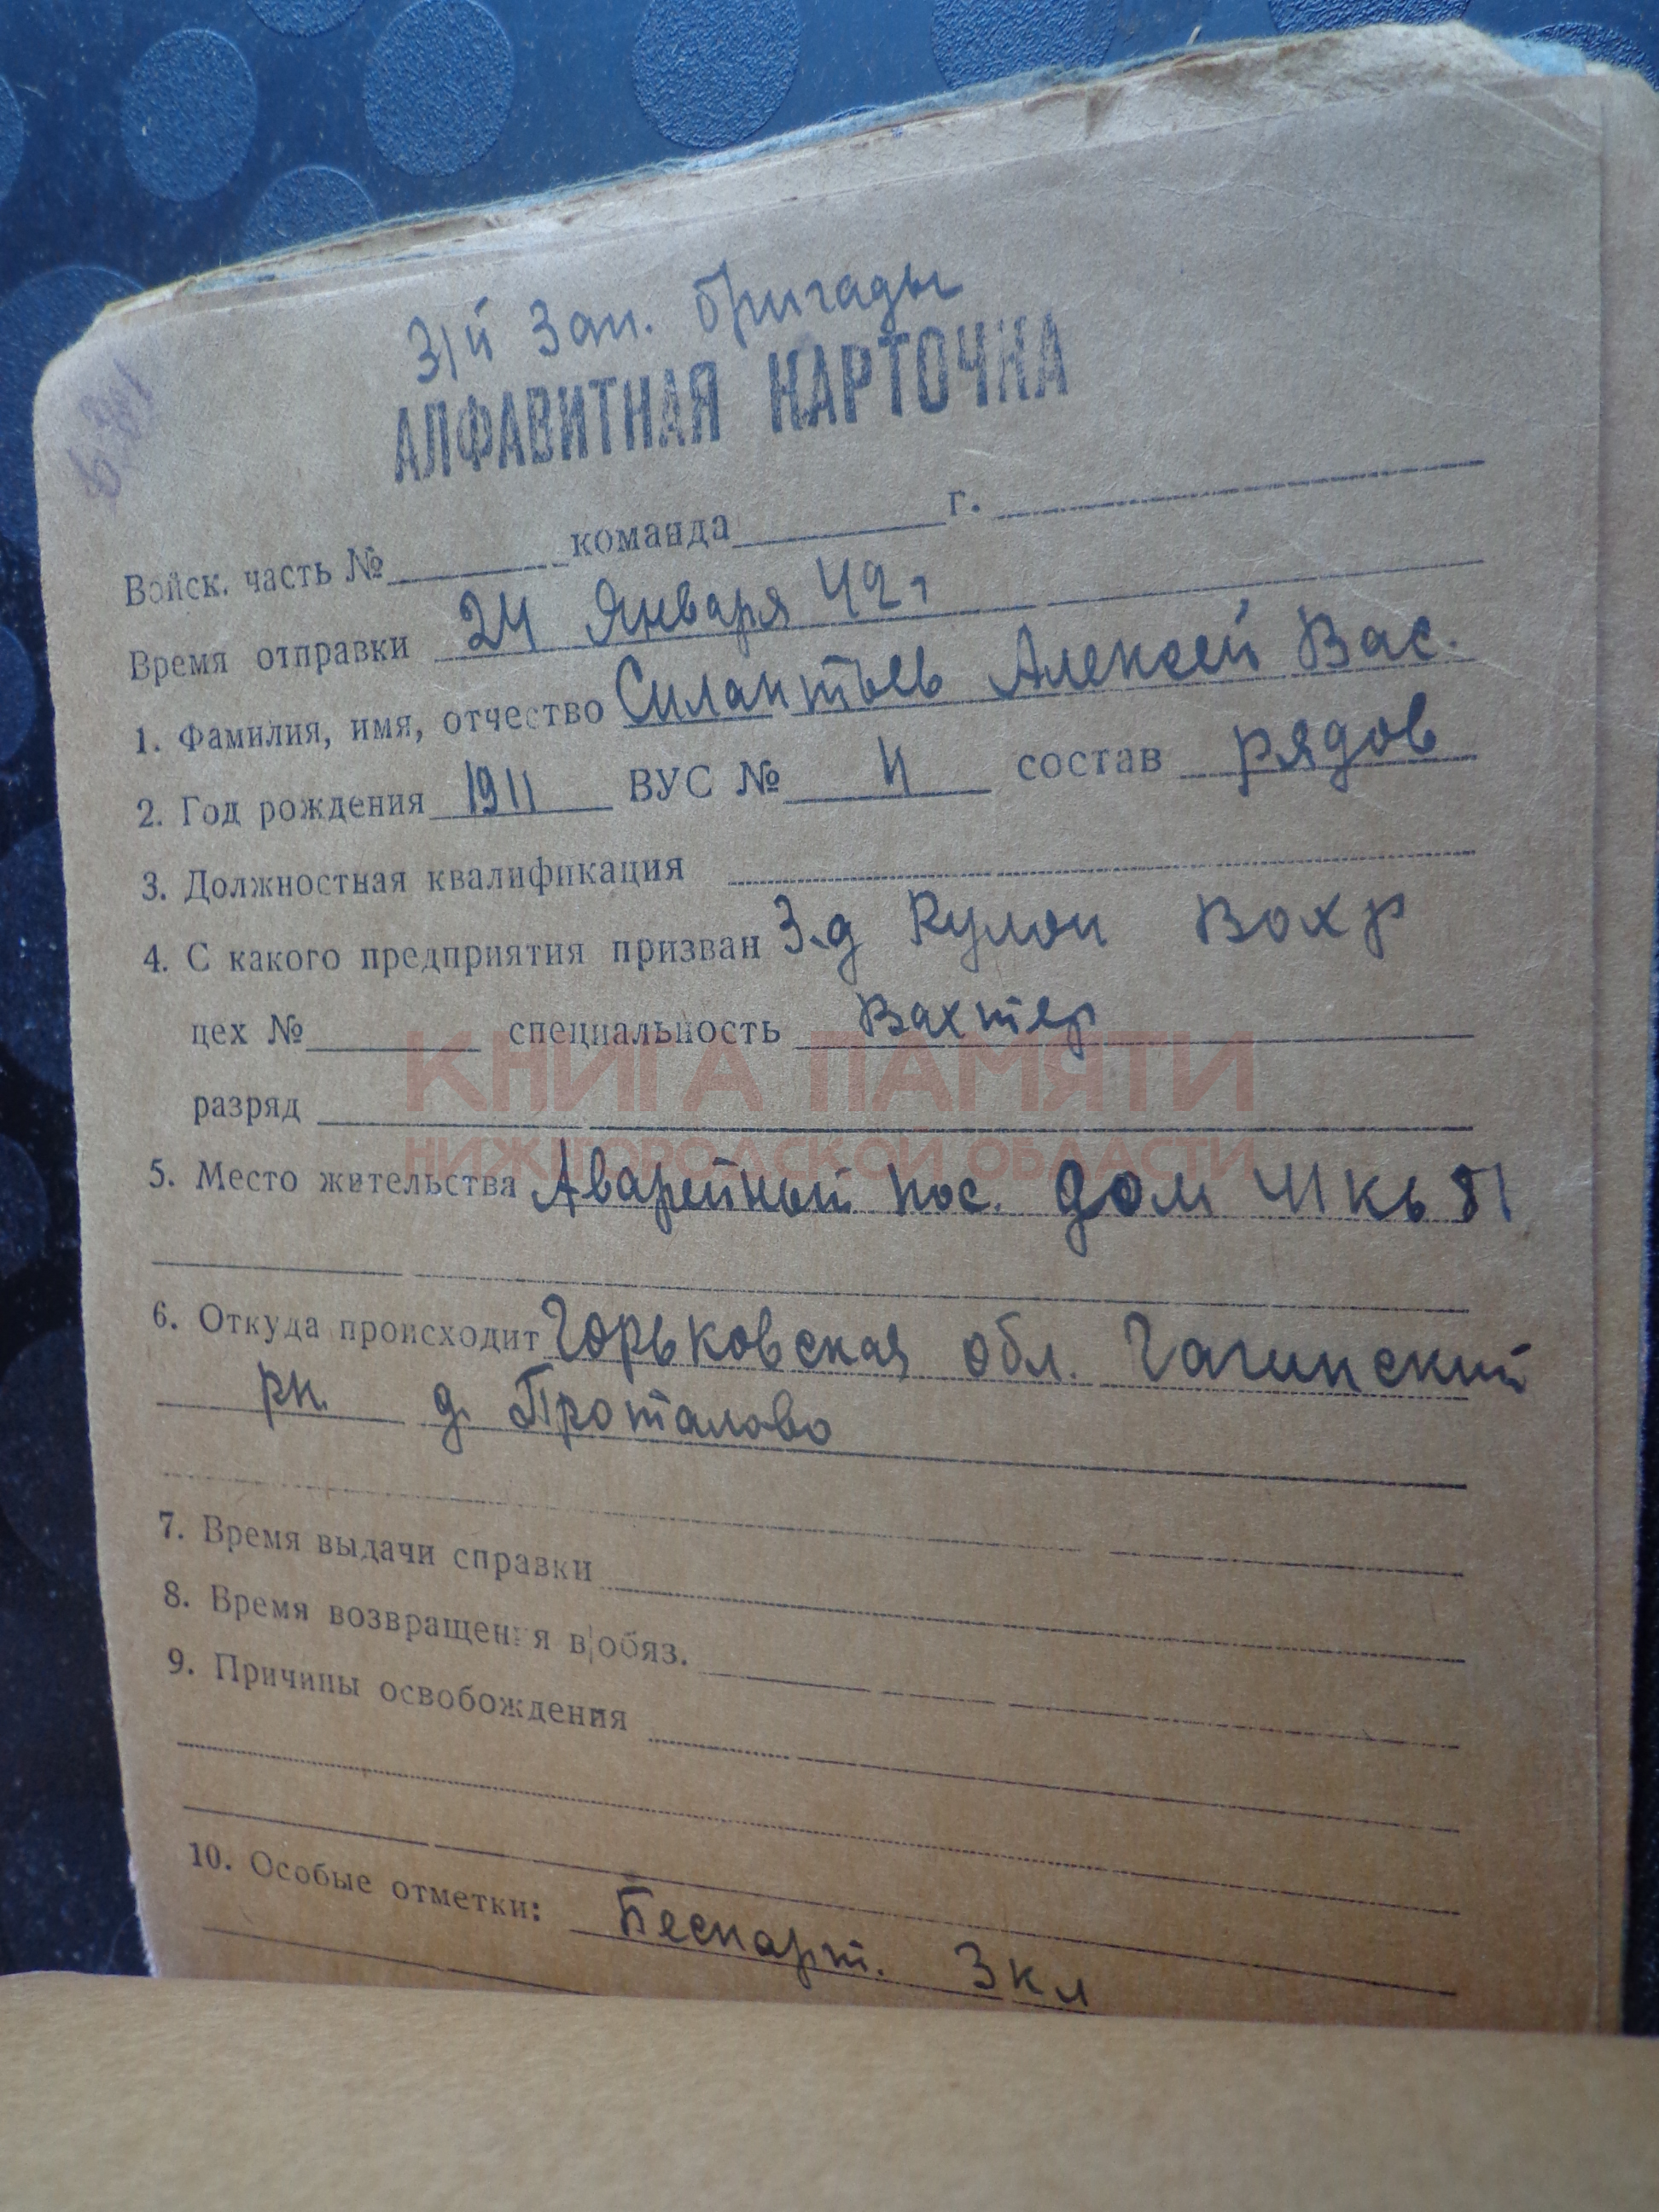 31й Зап. бригады
АЛФАВИТНАЯ КАРТОЧКА
Войск. часть № команда г.
Время отправки 24 Января 42 г
1. Фамилия, имя, отчество Силантьев Алексей Вас.
2. Год рождения 1911 ВУС № состав рядов
3. Должностная квалификация
4. С какого предприятия призван З-д Вохр
цех № специальность Вахтер
КНИГА ПАМЯТИ
разряд
НИЖЕГОРОДСКОЙ ОБЛАСТИ
5. Место жительства Аварейный пос. дом 41 кв
6. Откуда происходит Горьковская обл. Гагинский
рн. д. Проталово
7. Время выдачи справки
8. Время возвращения в обяз.
9. Причины освобождения
10. Особые отметки: Беспарт. 3 кл